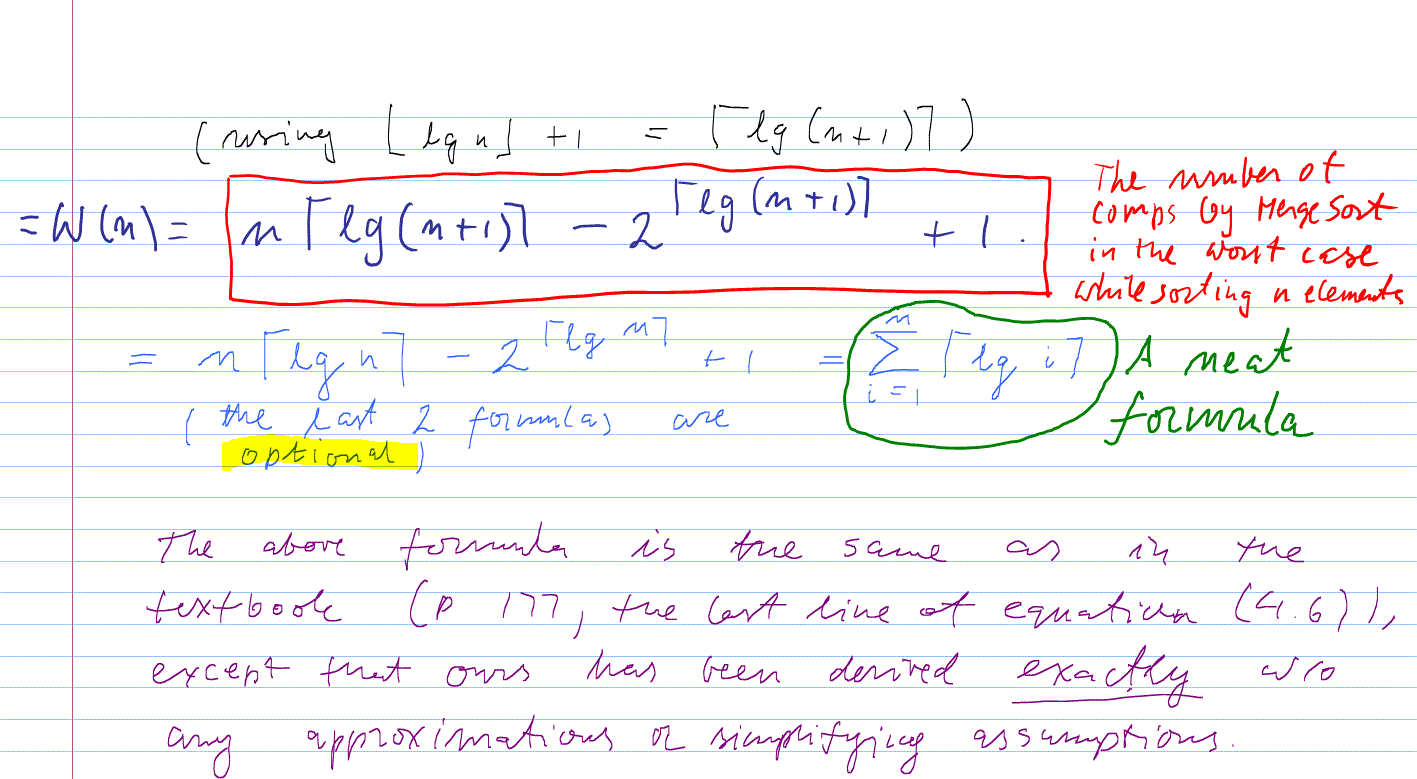 (using ⌊lg n⌋ + 1 = ⌈lg (n+1)⌉)
= W(n) = n⌈lg(n+1)⌉ − 2^⌈lg(n+1)⌉ + 1.
The number of
comps by MergeSort
in the worst case
while sorting n elements
= n⌈lg n⌉ − 2^⌈lg n⌉ + 1 = ∑_{i=1}^{n} ⌈lg i⌉
A neat
formula
(the last 2 formulas are
optional)
The above formula is the same as in the
textbook (p 177, the last line of equation (4.6)),
except that ours has been derived exactly w/o
any approximations or simplifying assumptions.